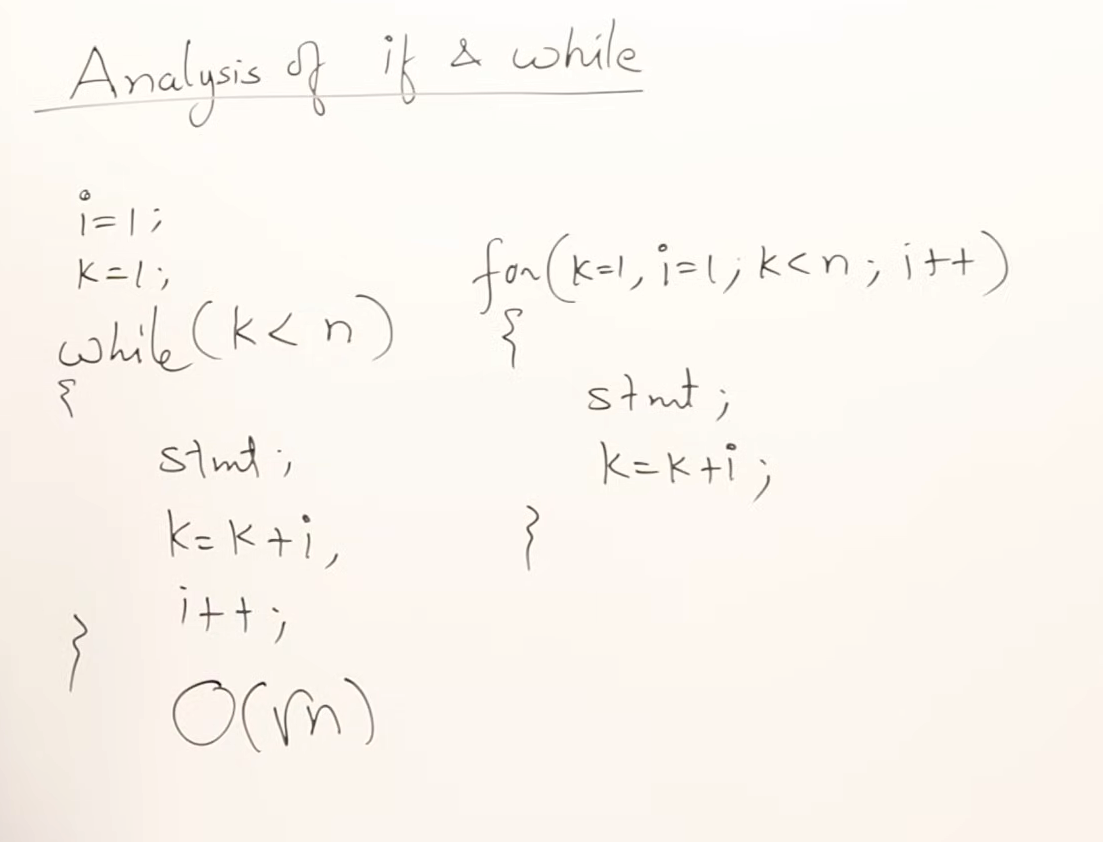 Analysis of if & while
i=1;
k=1;
while(k<n)
{
stmt;
k=k+i,
i++;
}
O(√n)
for(k=1, i=1; k<n; i++)
{
stmt;
k=k+i;
}